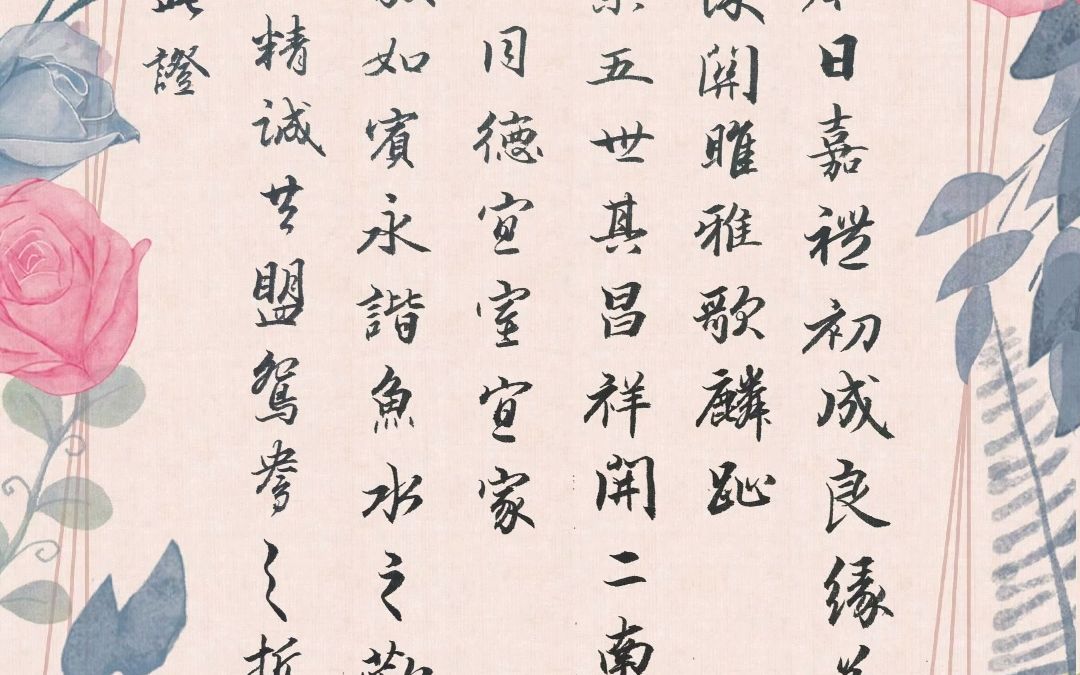 日嘉禮初成良緣
關雎雅歌麟趾
五世其昌祥開二南
同德宜室宜家
如賓永諧魚水之
精誠共盟鴛鴦之
證